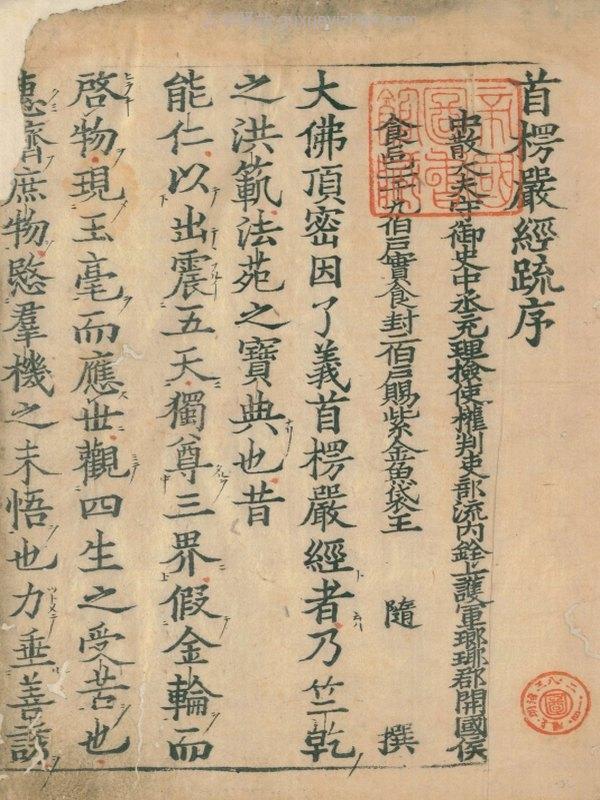 首楞嚴經疏序
中散大夫守御史中丞充理撿使權判吏部流內銓上護軍瑯琊郡開國侯
食邑一千九伯戶實食封二伯戶賜紫金魚袋王 隨 撰
大佛頂密因了義首楞嚴經者乃竺乾
之洪範法苑之寶典也昔
能仁以出震五天獨尊三界假金輪而
啓物現玉毫而應世觀四生之受苦也
惠濟庶物愍羣機之未悟也力垂善誘